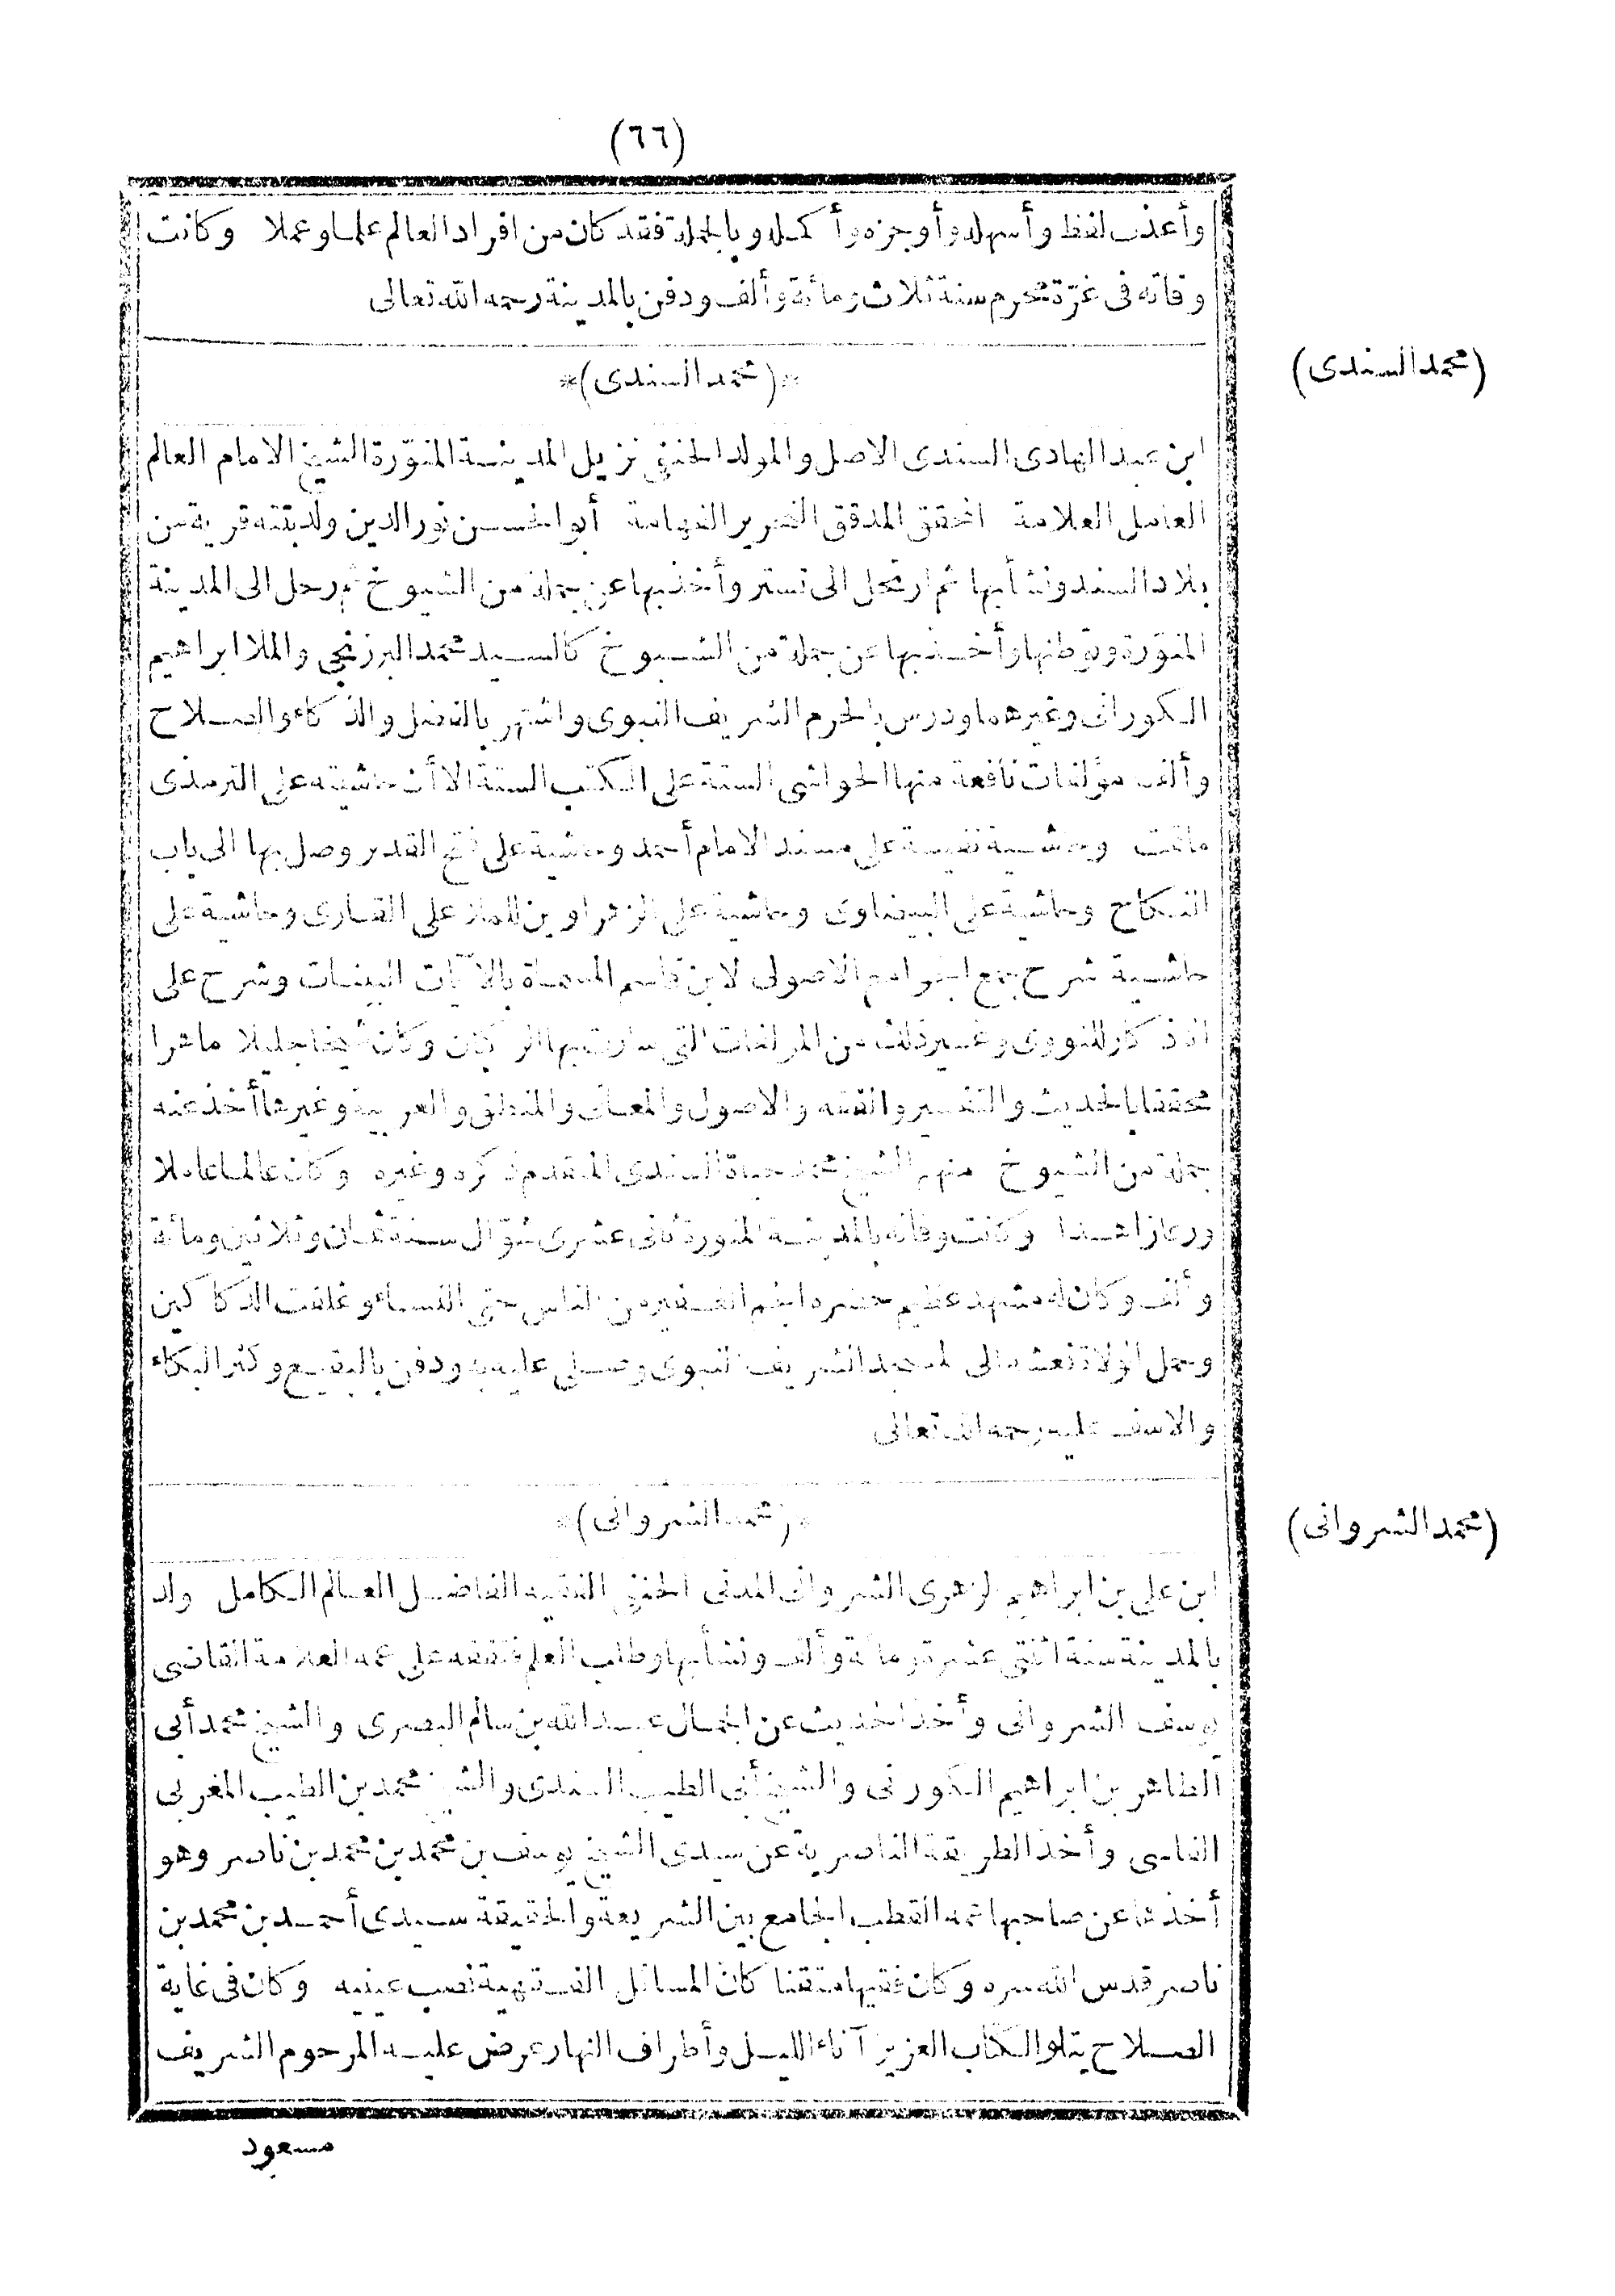 (٦٦)
وأعذب لفظ وأسهله وأوجزه وأكمله وبالجملة فقد كان من افراد العالم علما وعملا وكانت
وفاته فى غرّة محرم سنة ثلاث ومائة وألف ودفن بالمدينة رحمه الله تعالى
(محمد السندى)
*(محمد السندى)*
ابن عبد الهادى السندى الاصل والمولد الحنفى نزيل المدينة المنوّرة الشيخ الامام العالم
العامل العلامة المحقق المدقق النحرير الفهامة أبو الحسن نور الدين ولد بتته قرية من
بلاد السند ونشأ بها ثم ارتحل الى تستر وأخذ بها عن جملة من الشيوخ ثم رحل الى المدينة
المنوّرة وتوطنها وأخذ بها عن جملة من الشيوخ كالسيد محمد البرزنجى والملا ابراهيم
الكورانى وغيرهما ودرس بالحرم الشريف النبوى واشتهر بالفضل والذكاء والصلاح
وألف مؤلفات نافعة منها الحواشى الستة على الكتب الستة الا أن حاشيته على الترمذى
ماتمت وحاشية نفيسة على مسند الامام أحمد وحاشية على فتح القدير وصل بها الى باب
النكاح وحاشية على البيضاوى وحاشية على الزهراوين للملا على القارى وحاشية على
حاشية شرح جمع الجوامع الاصولى لابن قاسم المسماة بالآيات البينات وشرح على
اذكار النووى وغير ذلك من المؤلفات التى سارت بها الركبان وكان شيخا جليلا ماهرا
محققا بالحديث والتفسير والفقه والاصول والمعانى والمنطق والعربية وغيرها أخذ عنه
جملة من الشيوخ منهم الشيخ محمد حياة السندى المتقدم ذكره وغيره وكان عالما عاملا
ورعا زاهدا وكانت وفاته بالمدينة المنورة ثانى عشرى شوّال سنة ثمان وثلاثين ومائة
وألف وكان له مشهد عظيم حضره الجم الغفير من الناس حتى النساء وغلقت الدكاكين
وحمل الولاة نعشه الى المسجد الشريف النبوى وصلى عليه به ودفن بالبقيع وكثر البكاء
والاسف عليه رحمه الله تعالى
(محمد الشروانى)
*(محمد الشروانى)*
ابن على بن ابراهيم الزهرى الشروانى المدنى الحنفى الفقيه الفاضل العالم الكامل ولد
بالمدينة سنة اثنتى عشرة ومائة وألف ونشأ بها وطلب العلم فتفقه على عمه العلامة القاضى
يوسف الشروانى وأخذ الحديث عن الجمال عبد الله بن سالم البصرى والشيخ محمد أبى
الطاهر بن ابراهيم الكورانى والشيخ أبى الطيب السندى والشيخ محمد بن الطيب المغربى
الفاسى وأخذ الطريقة الناصرية عن سيدى الشيخ يوسف بن محمد بن محمد بن ناصر وهو
أخذها عن صاحبها عمه القطب الجامع بين الشريعة والحقيقة سيدى أحمد بن محمد بن
ناصر قدس الله سره وكان فقيها متقنا كان المسائل الفقهية نصب عينيه وكان فى غاية
الصلاح يتلو الكتاب العزيز آناء الليل وأطراف النهار عرض عليه المرحوم الشريف
مسعود